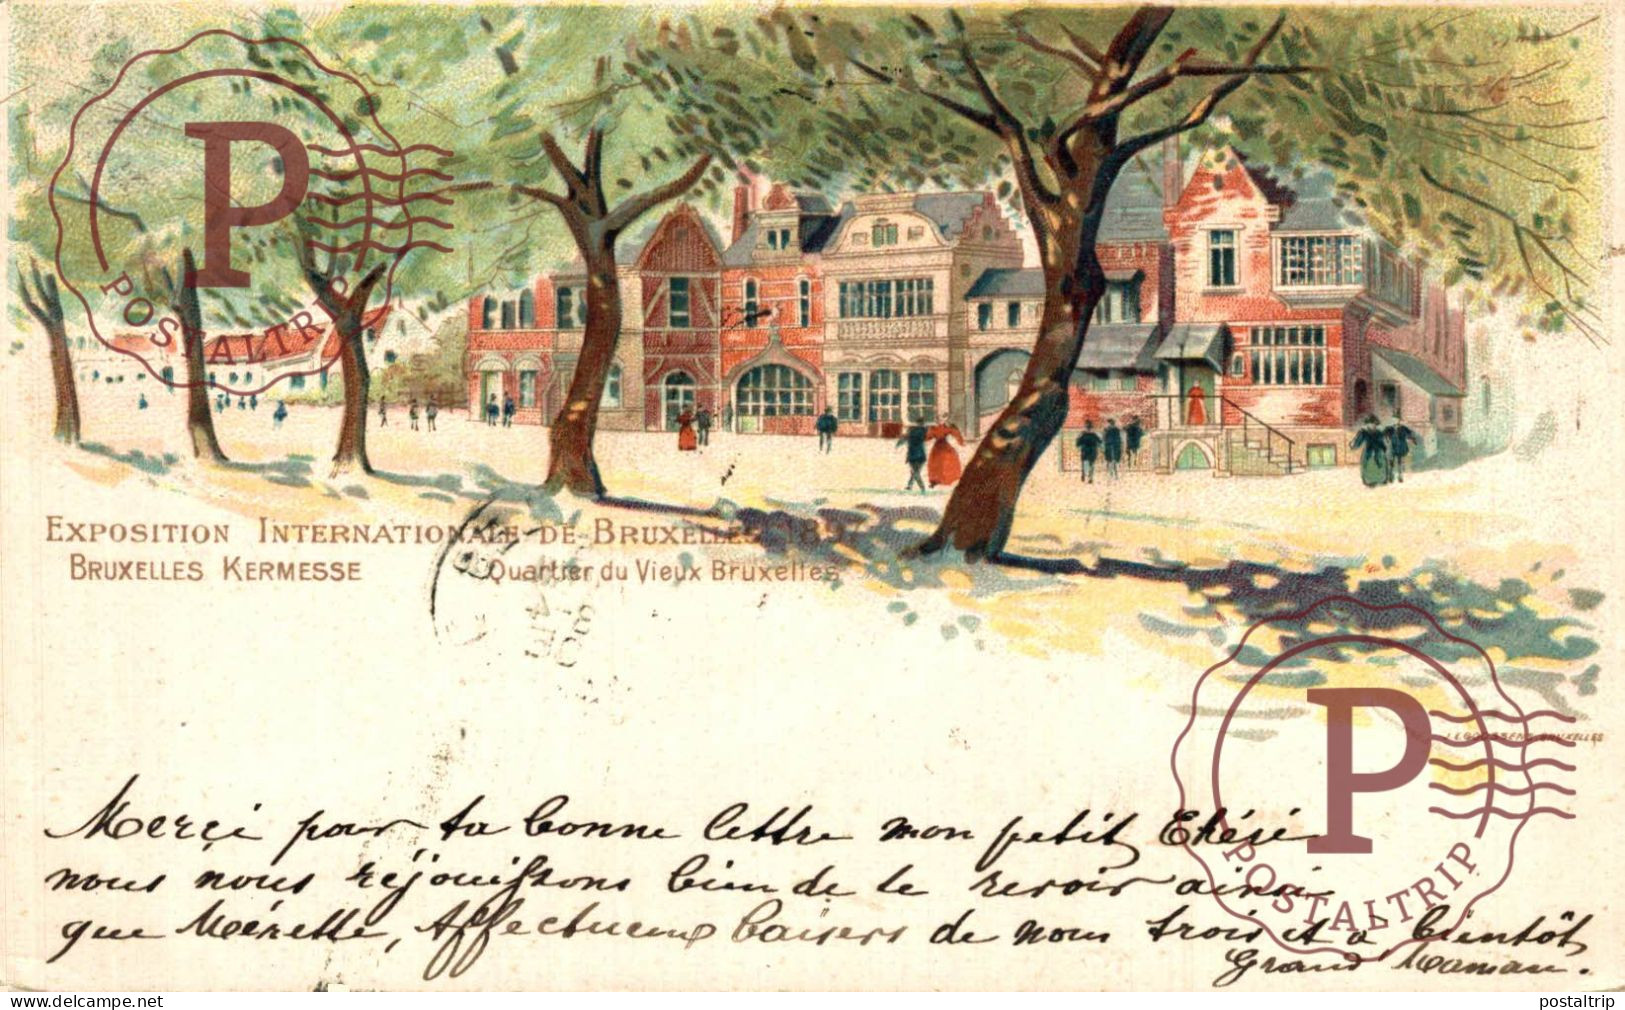 POSTALTRIP
EXPOSITION INTERNATIONALE DE BRUXELLES 1897
BRUXELLES KERMESSE Quartier du Vieux Bruxelles
J.L. GOOSSENS BRUXELLES
Merçi pour ta bonne lettre mon petit
nous nous réjouissons bien de te revoir ainsi
que Mérette, Affectueux baisers de nous trois et à bientôt
Grand Maman.
POSTALTRIP
delcampe.net
postaltrip